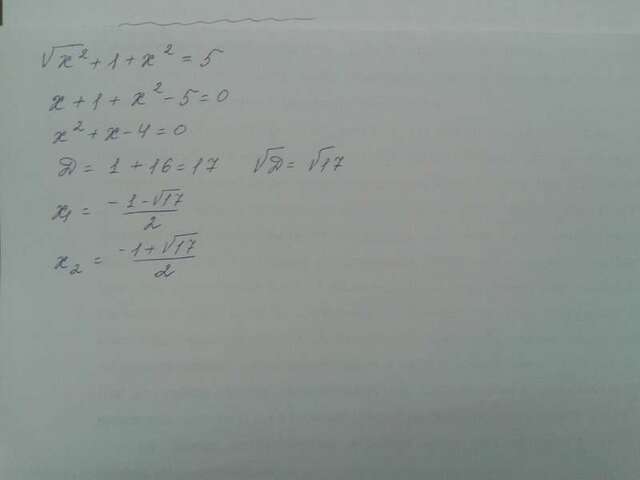 √x² + 1 + x² = 5
x + 1 + x² - 5 = 0
x² + x - 4 = 0
D = 1 + 16 = 17 √D = √17
x₁ = (-1-√17)/2
x₂ = (-1+√17)/2